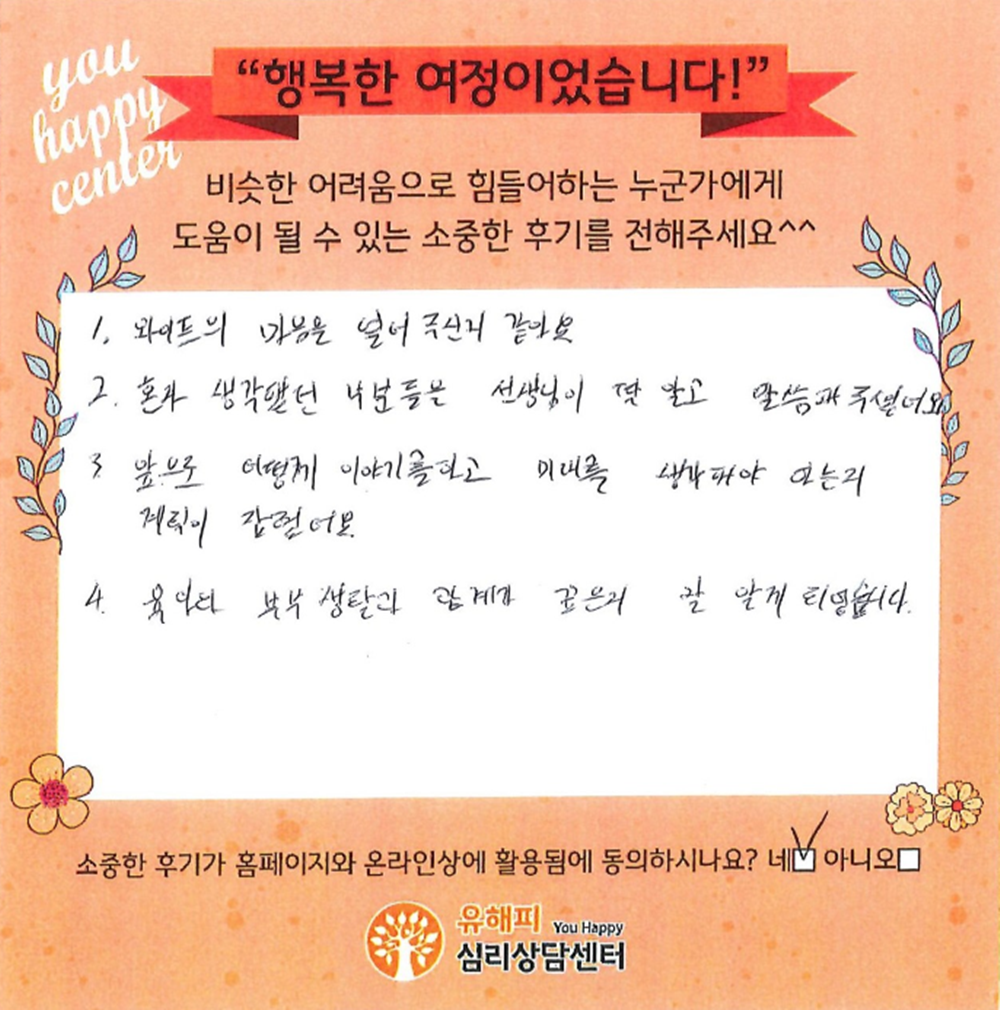 you
happy
center
“행복한 여정이었습니다!”
비슷한 어려움으로 힘들어하는 누군가에게
도움이 될 수 있는 소중한 후기를 전해주세요^^
1. 와이프의 마음을 열어 주신거 같아요
2. 혼자 생각했던 부분들을 선생님이 딱 알고 말씀해 주셨어요
3. 앞으로 어떻게 이야기를하고 미래를 생각해야 하는지
계획이 잡혔어요.
4. 육아와 부부 생활과 관계가 깊은지 잘 알게 되었습니다.
소중한 후기가 홈페이지와 온라인상에 활용됨에 동의하시나요? 네 아니오
유해피 You Happy
심리상담센터